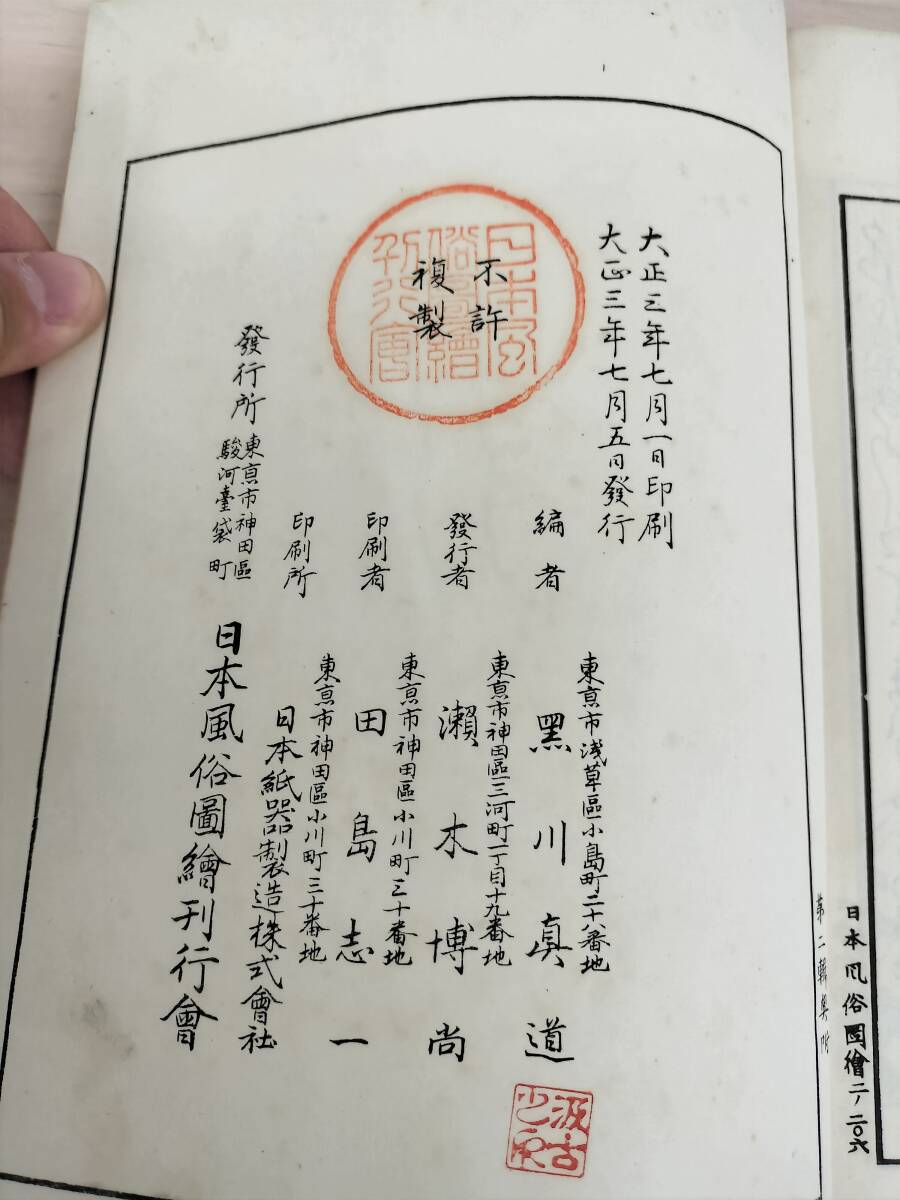 大正三年七月一日印刷
大正三年七月五日發行
日本風
俗圖繪
刊行會
不許
複製
編者
東亰市淺草區小島町二十八番地
黑川眞道
發行者
東亰市神田區三河町一丁目十九番地
瀨木博尚
印刷者
東亰市神田區小川町三十番地
田島志一
印刷所
東亰市神田區小川町三十番地
日本紙器製造株式會社
發行所
東亰市神田區
駿河臺袋町
日本風俗圖繪刊行會
日本風俗圖繪二ノ二〇六